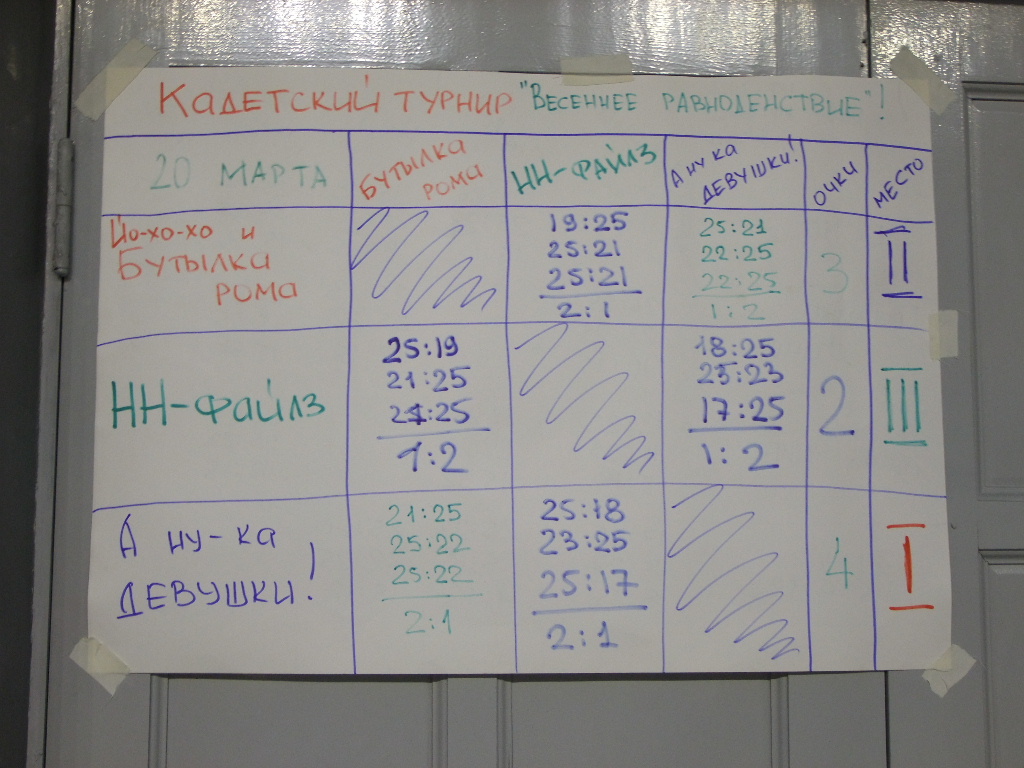 Кадетский турнир "Весеннее равноденствие"!
20 марта
Бутылка
рома
НН-файлз
А ну ка
девушки!
очки
место
Йо-хо-хо и
Бутылка
рома
19:25
25:21
25:21
2:1
25:21
22:25
22:25
1:2
3
II
НН-файлз
25:19
21:25
21:25
1:2
18:25
25:23
17:25
1:2
2
III
А ну-ка
девушки!
21:25
25:22
25:22
2:1
25:18
23:25
25:17
2:1
4
I